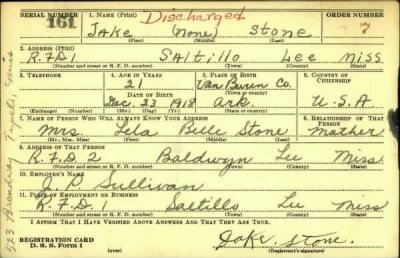 SERIAL NUMBER 1. NAME (Print) Discharged ORDER NUMBER
161 Jake (None) Stone
(First) (Middle) (Last)
2. ADDRESS (Print)
R.F.D.1 Saltillo Lee Miss
(Number and street or R. F. D. number) (Town) (County) (State)
3. TELEPHONE 4. AGE IN YEARS 5. PLACE OF BIRTH 6. COUNTRY OF CITIZENSHIP
21 Van Buren Co.
DATE OF BIRTH (Town or county)
Dec. 23 1918 Ark U.S.A.
(Exchange) (Number) (Mo.) (Day) (Yr.) (State or country)
7. NAME OF PERSON WHO WILL ALWAYS KNOW YOUR ADDRESS 8. RELATIONSHIP OF THAT PERSON
Mrs. Lela Belle Stone Mother
(Mr., Mrs., Miss) (First) (Middle) (Last)
9. ADDRESS OF THAT PERSON
R.F.D. 2 Baldwyn Lee Miss.
(Number and street or R. F. D. number) (Town) (County) (State)
10. EMPLOYER'S NAME
Sullivan
11. PLACE OF EMPLOYMENT OR BUSINESS
R.F.D. 1 Saltillo Lee Miss
(Number and street or R. F. D. number) (Town) (County) (State)
I AFFIRM THAT I HAVE VERIFIED ABOVE ANSWERS AND THAT THEY ARE TRUE.
REGISTRATION CARD
D. S. S. Form 1 (over) Jake Stone.
(Registrant's signature)
323 Broadway Tupelo, Miss